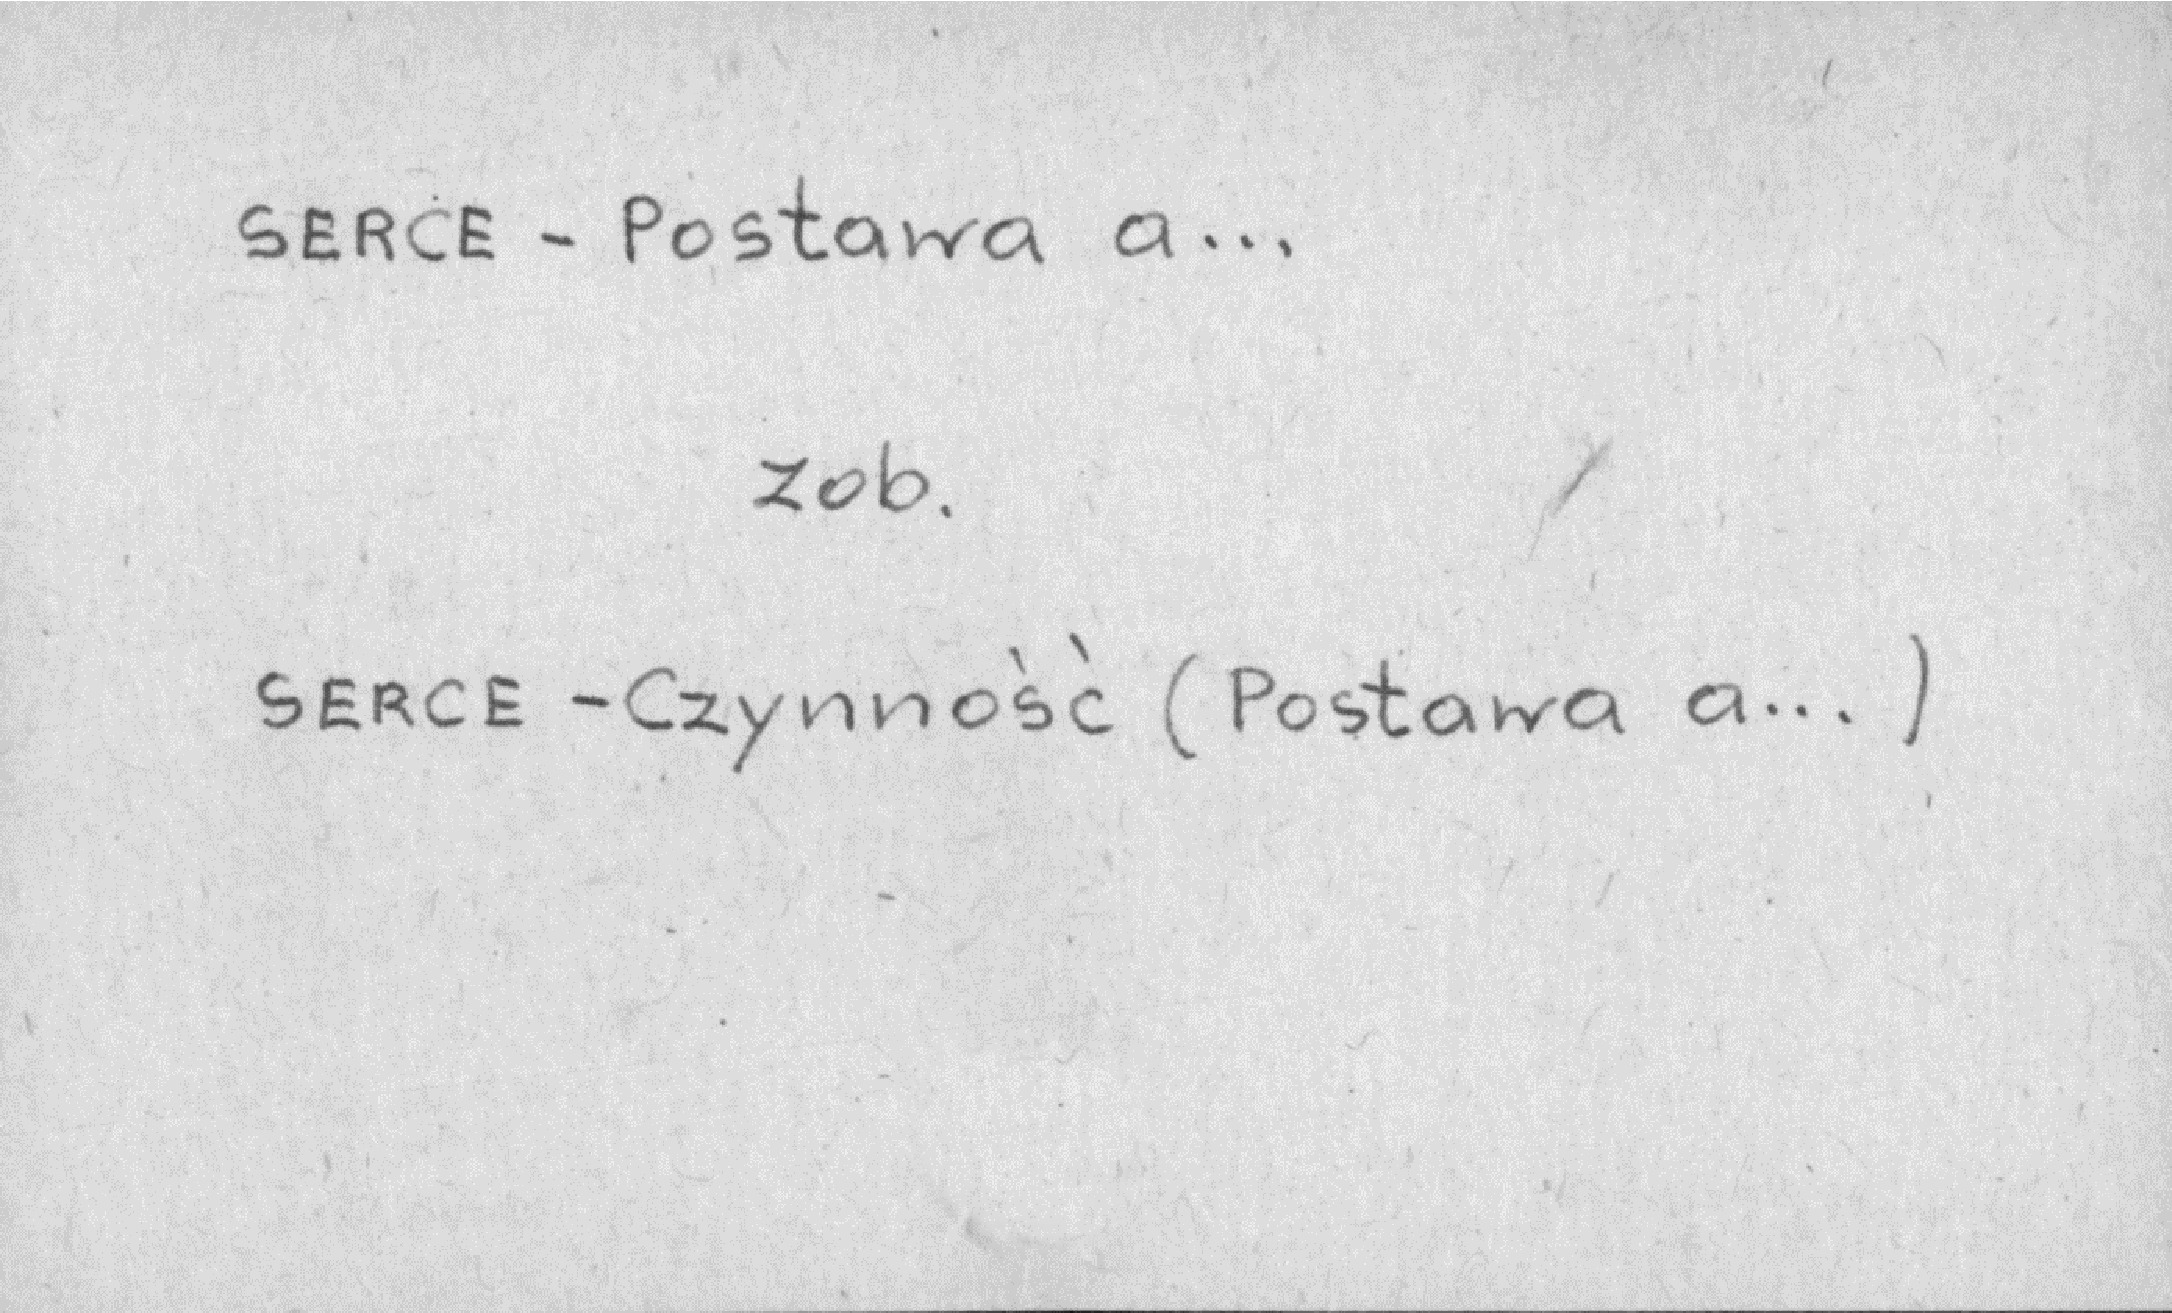 SERCE - Postawa a...
zob.
SERCE - Czynność (Postawa a...)